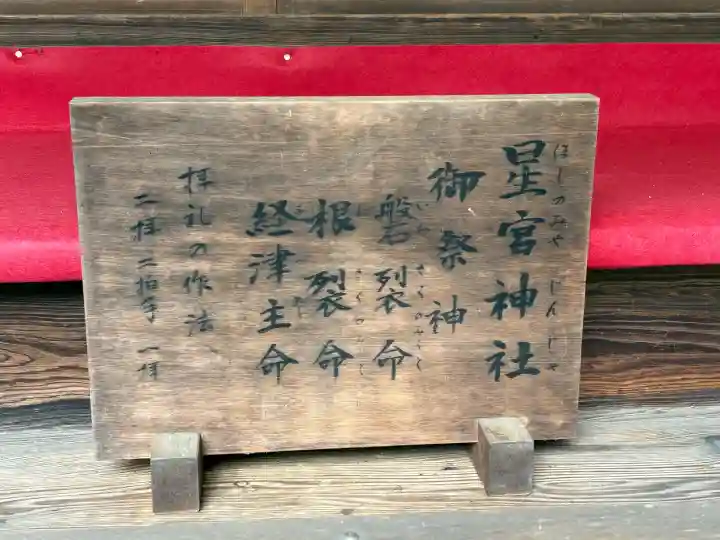 星宮神社
ほしのみや じんじゃ
御祭神
磐裂命
いわさくのみこと
根裂命
経津主命
拝礼の作法
二拝二拍手一拝